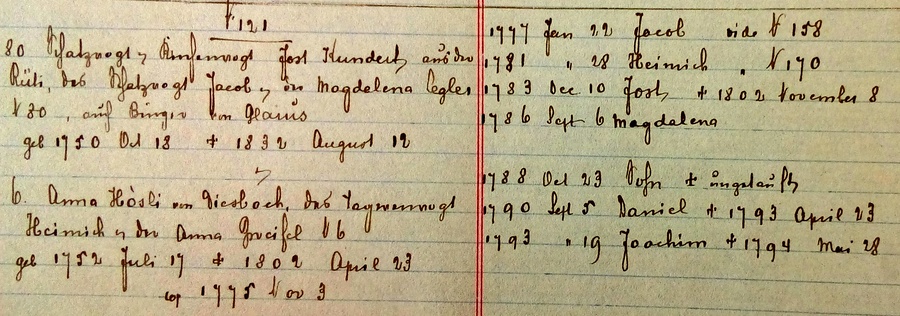 N 121
80 Schatzvogt u Kirchenvogt Jost Kundert, aus der
Rüti, des Schatzvogt Jacob u der Magdalena Legler
N 80, auch Bürger von Glarus
geb 1750 Oct 18 + 1832 August 12
6. Anna Hösli von Diesbach, des Tagwenvogt
Heinrich u der Anna Greifel N 6
geb 1752 Juli 17 + 1802 April 23
cop 1775 Nov 3
1777 Jan 22 Jacob vide N 158
1781 " 28 Heinrich " N 170
1783 Dec 10 Jost, + 1802 November 8
1786 Sept 6 Magdalena
1788 Oct 23 Sohn + ungetauft
1790 Sept 5 Daniel + 1793 April 23
1793 " 19 Joachim + 1794 Mai 28